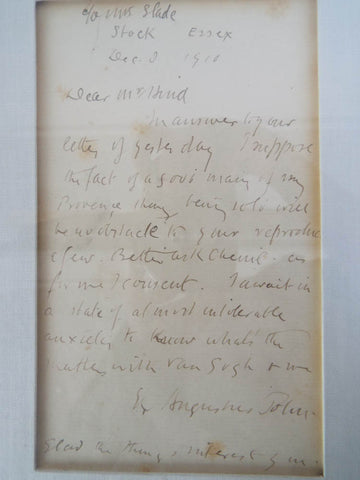 c/o Mrs Slade
Stock Essex
Dec 8 1910
Dear Mr Hind
In answer to your
letter of yesterday I suppose
the fact of a good many of my
Provence things being sold will
be no obstacle to your reproducing
a few. Better ask Chenil. as
for me I consent. I await in
a state of almost intolerable
anxiety to know what's the
matter with Van Gogh &
Augustus John
glad the things interest you.